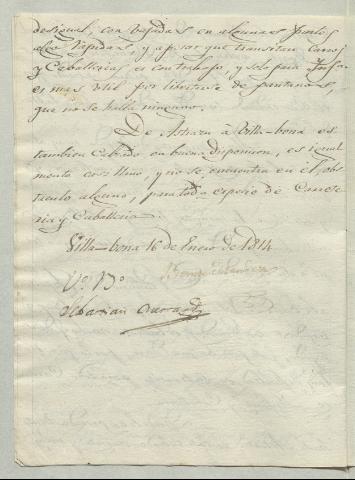 desigual, con vajadas en algunas puntos
algo rapidas, y apesar que transitan Carros
y Caballerias es con trabajo, y solo para Infan
es mas util por libertarse de pantanos,
que no se halla ninguno.
De Asteasu à Villa-bona es
tambien Calzada en buena disposicion, es igual
mente casi llano, y no se encuentra en él, obs
taculo alguno, para toda especie de Carrete
ria y Caballeria.
Villa-bona 16 de Enero de 1814
Vº Bº
Sebastian